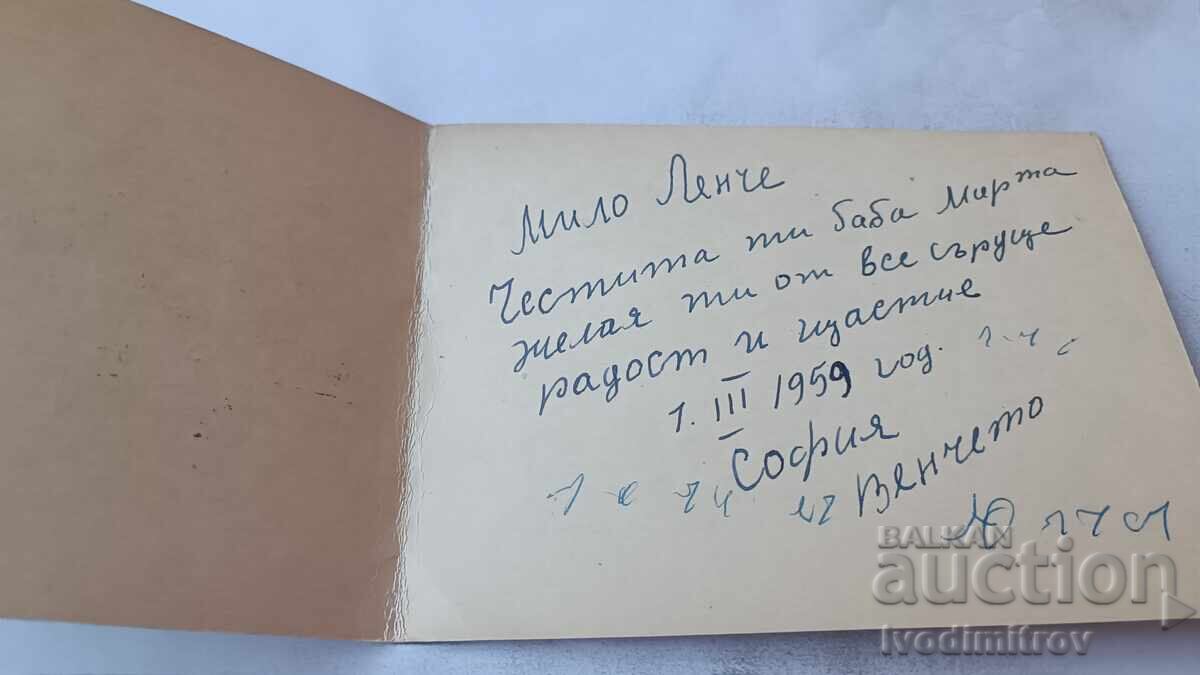 Мило Ленче
Честита ти баба Марта
желая ти от все сърце
радост и щастие
1. III 1959 год.
София
Венчето
BALKAN
auction
Ivodimitrov